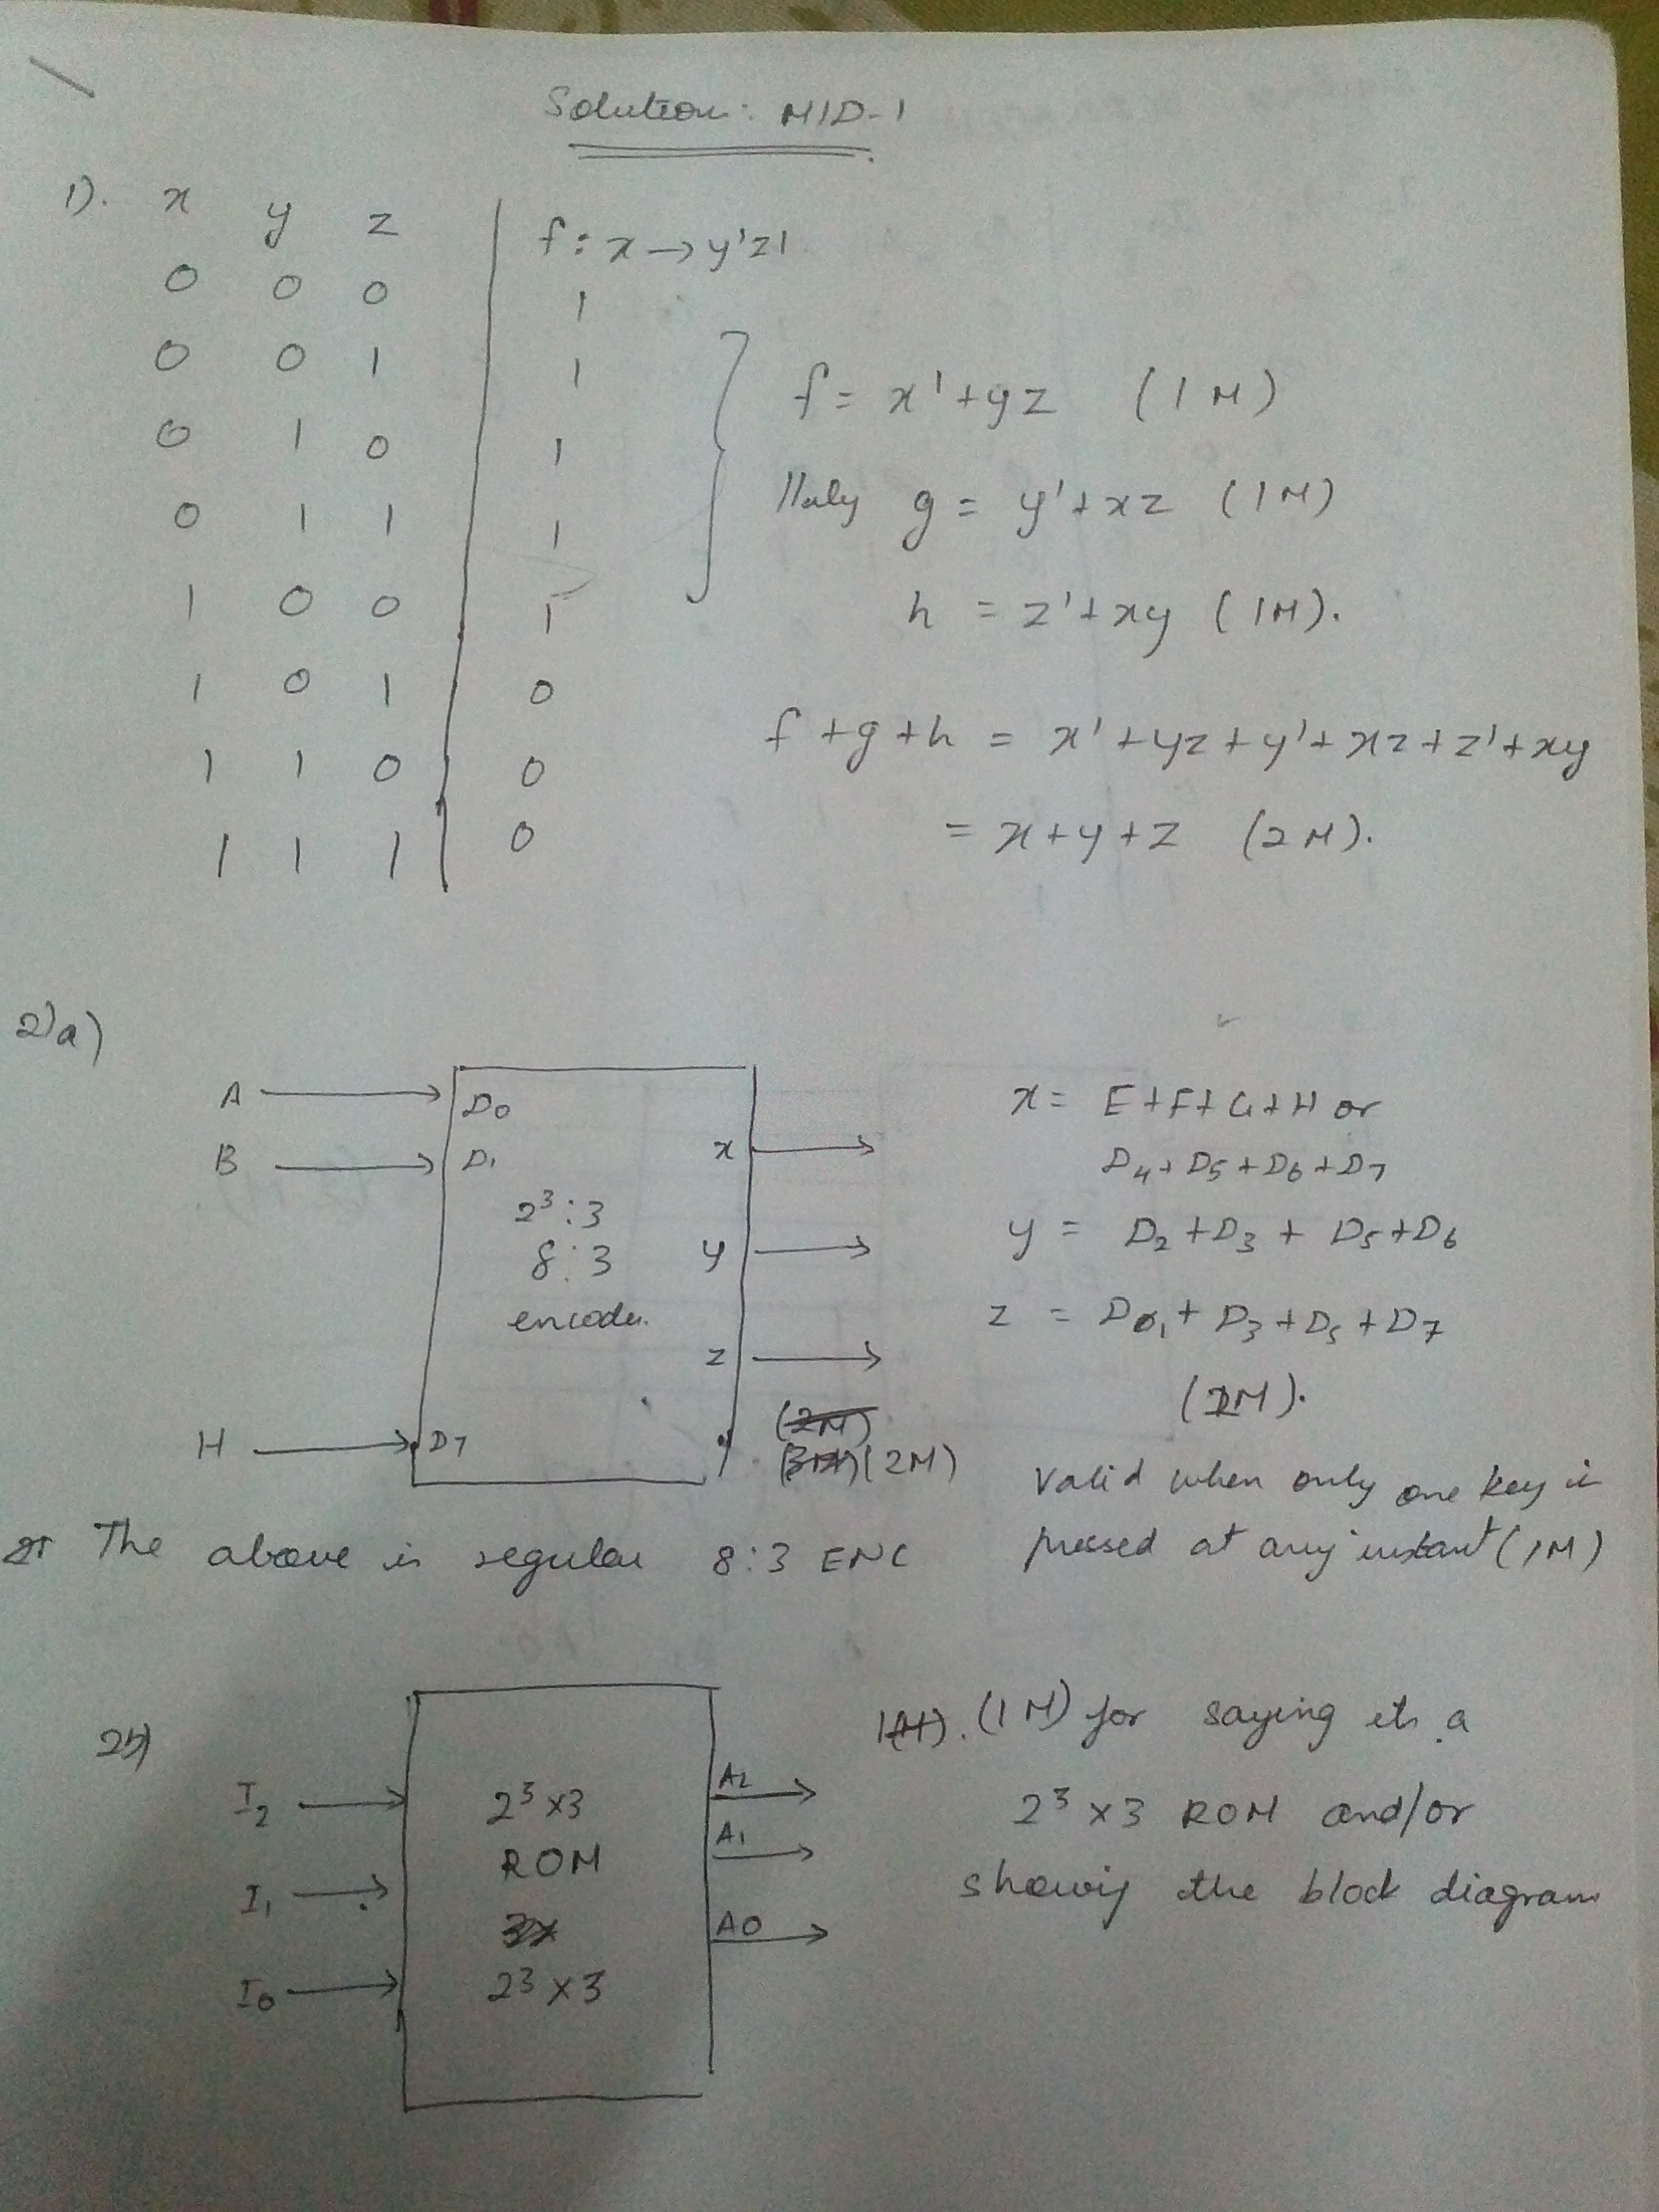 Solution: MID-1
1). x y z f: x → y'z'
0 0 0 1
0 0 1 1
0 1 0 1
0 1 1 1
1 0 0 1
1 0 1 0
1 1 0 0
1 1 1 0
f = x' + yz (1M)
llrly g = y' + xz (1M)
h = z' + xy (1M).
f + g + h = x' + yz + y' + xz + z' + xy
= x + y + z (2M).
2)a)
A → D0
B → D1
x →
2³:3
8:3
encoder.
y →
z →
H → D7
(2M)
(2M)
x = E + F + G + H or
D4 + D5 + D6 + D7
y = D2 + D3 + D5 + D6
z = D1 + D3 + D5 + D7
(2M).
Valid when only one key is
pressed at any instant (1M)
The above is regular 8:3 ENC
2b)
I2 →
I1 →
I0 →
2³ x 3
ROM
3x
2³ x 3
A2 →
A1 →
A0 →
(1M) for saying its a
2³ x 3 ROM and/or
showing the block diagram